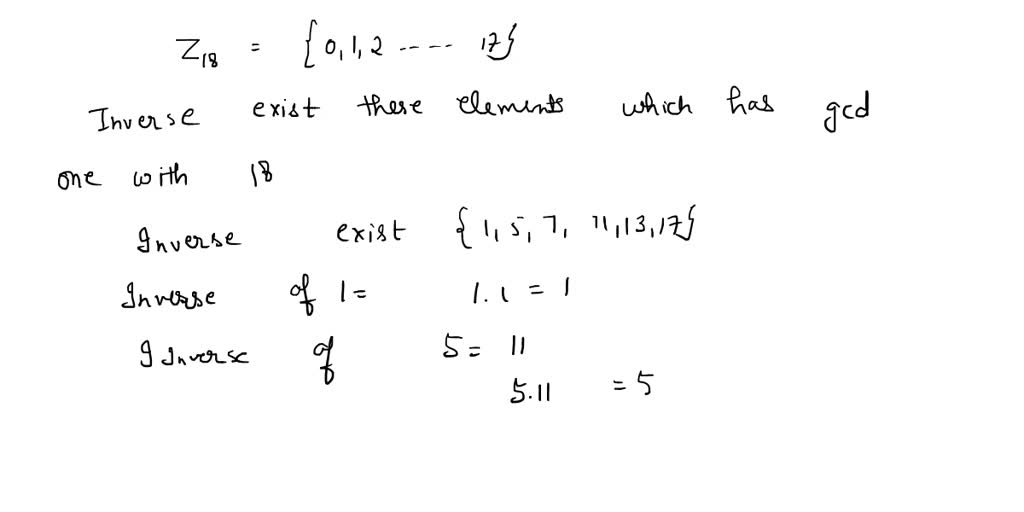 Z₁₈ = {0, 1, 2 ------ 17}
Inverse exist these elements which has gcd
one with 18
Inverse exist {1, 5, 7, 11, 13, 17}
Inverse of 1 = 1.1 = 1
I Inverse of 5 = 11
5.11 = 5